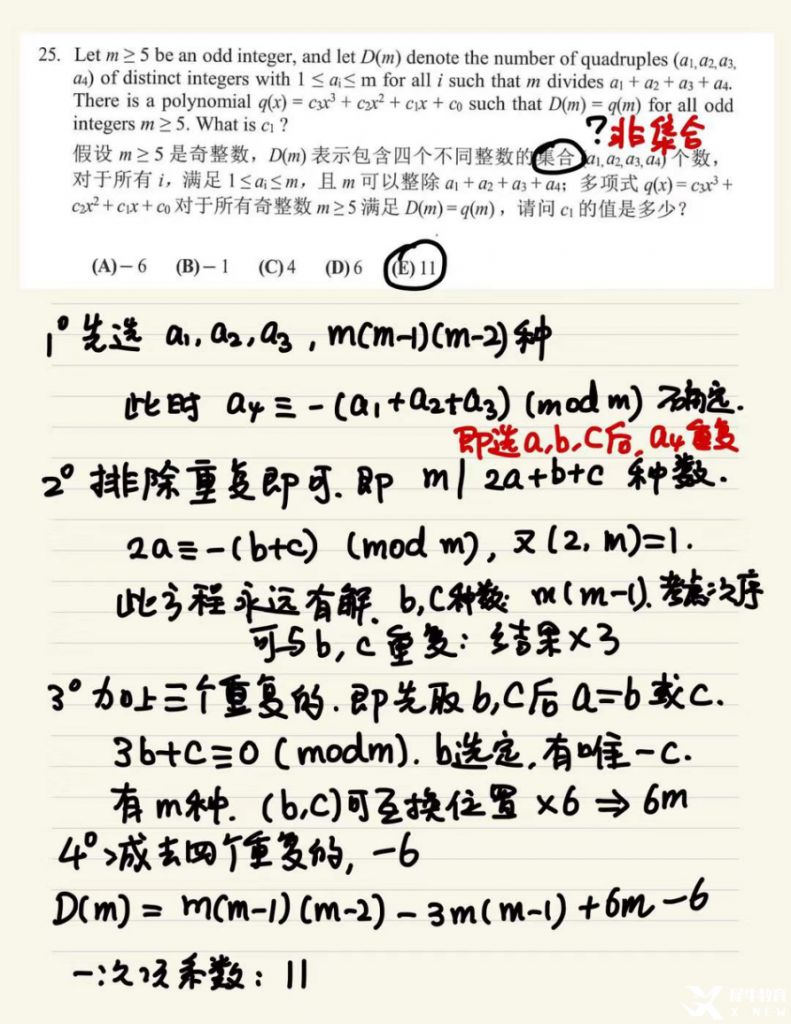 25. Let m ≥ 5 be an odd integer, and let D(m) denote the number of quadruples (a₁, a₂, a₃,
a₄) of distinct integers with 1 ≤ aᵢ ≤ m for all i such that m divides a₁ + a₂ + a₃ + a₄.
There is a polynomial q(x) = c₃x³ + c₂x² + c₁x + c₀ such that D(m) = q(m) for all odd
integers m ≥ 5. What is c₁ ?
?非集合
假设 m ≥ 5 是奇整数，D(m) 表示包含四个不同整数的集合 (a₁, a₂, a₃, a₄) 个数，
对于所有 i，满足 1 ≤ aᵢ ≤ m，且 m 可以整除 a₁ + a₂ + a₃ + a₄；多项式 q(x) = c₃x³ +
c₂x² + c₁x + c₀ 对于所有奇整数 m ≥ 5 满足 D(m) = q(m)，请问 c₁ 的值是多少？
(A) − 6 (B) − 1 (C) 4 (D) 6 (E) 11
1° 先选 a₁, a₂, a₃, m(m-1)(m-2)种
此时 a₄ ≡ -(a₁+a₂+a₃) (mod m) 确定.
即选a,b,c后, a₄重复
2° 排除重复即可. 即 m | 2a+b+c 种数.
2a ≡ -(b+c) (mod m), 又(2, m)=1.
此方程永远有解. b,c种数: m(m-1). 考虑次序
可与b, c重复: 结果×3
3° 加上三个重复的. 即先取b,c后 a=b或c.
3b+c≡0 (mod m). b选定, 有唯一c.
有m种. (b,c)可互换位置 ×6 ⇒ 6m
4° 减去四个重复的, -6
D(m) = m(m-1)(m-2) - 3m(m-1) + 6m - 6
一次项系数: 11
犀牛教育
X-NEW